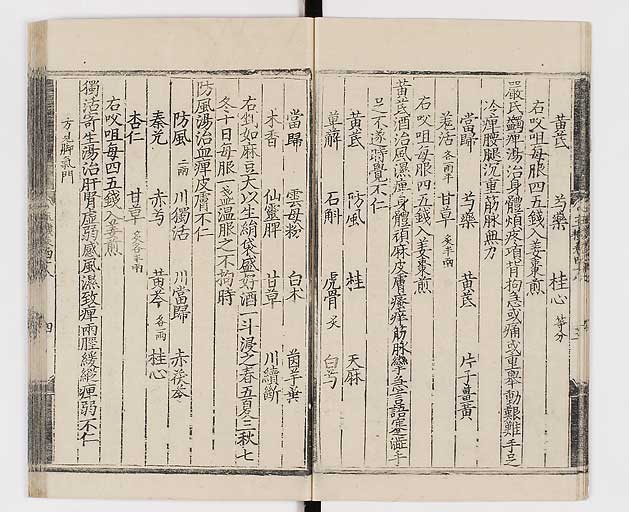 黃芪 芍藥 桂心 等分
右㕮咀每服四五錢入姜棗煎
嚴氏蠲痺湯治身體煩疼項背拘急或痛或重舉動艱難手足
冷痺腰腿沉重筋脉無力
當歸 芍藥 黃芪 片子薑黃
羌活 各兩半 甘草 炙半兩
右㕮咀每服四五錢入姜棗煎
黃芪酒治風濕痺身體頑麻皮膚瘙痒筋脉攣急言語蹇澁手
足不遂時覺不仁
黃芪 防風 桂 天麻
萆薢 石斛 虎骨 炙 白芍
當歸 雲母粉 白朮 茵芋葉
木香 仙靈脾 甘草 川續斷
右剉如麻豆大以生絹袋盛好酒一斗浸之春五夏三秋七
冬十日每服一盞溫服之不拘時
防風湯治血痺皮膚不仁
防風 二兩 川獨活 川當歸 赤茯苓
秦艽 赤芍 黃芩 各一兩 桂心
杏仁 甘草 炙各半兩
右㕮咀每四五錢入姜煎
獨活寄生湯治肝腎虛弱感風濕致痺兩脛緩縱痺弱不仁
方見脚氣門